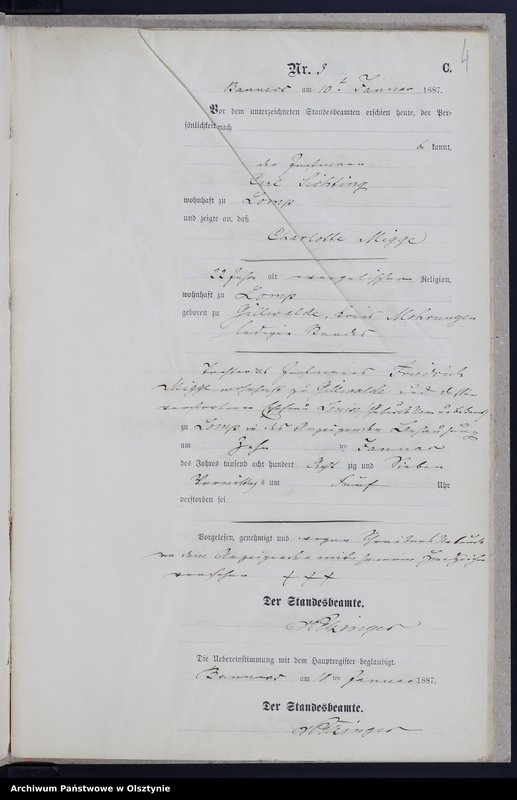 4
Nr. 3 C.
Banners am 10ten Januar 1887.
Vor dem unterzeichneten Standesbeamten erschien heute, der Per-
sönlichkeit nach
be kannt,
der
Carl
wohnhaft zu Lomp
und zeigte an, daß
Charlotte Migge
22 Jahr alt evangelischer Religion,
wohnhaft zu Lomp
geboren zu Gillwalde, Kreis Mohrungen
ledigen Standes
Tochter des Friedrich
Migge, wohnhaft zu Gillwalde und dessen
verstorbenen Ehefrau
zu Lomp in des Anzeigenden Behausung
am Zehn ten Januar
des Jahres tausend acht hundert Acht zig und Sieben
Vormittags um Fünf Uhr
verstorben sei
Vorgelesen, genehmigt und wegen
von dem Anzeigenden mit seinem Handzeichen
versehen + + +
Der Standesbeamte.
Die Uebereinstimmung mit dem Hauptregister beglaubigt.
Banners am ten Januar 1887.
Der Standesbeamte.
Archiwum Państwowe w Olsztynie